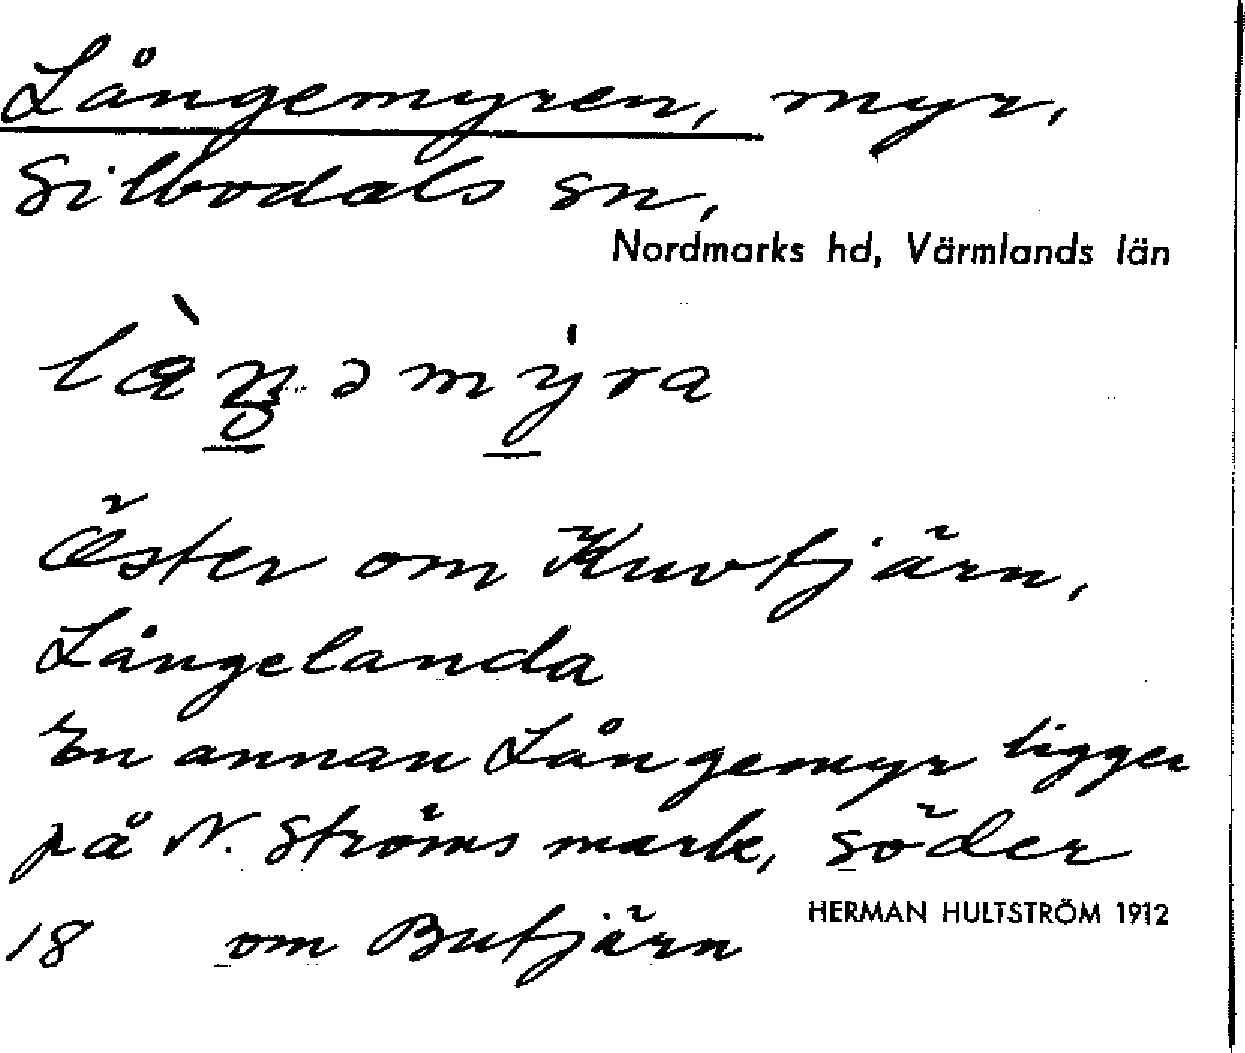 Långemyren, myr,
Silbodals sn,
Nordmarks hd, Värmlands län
Öster om Kuvtjärn,
Långelanda
En annan Långemyr ligger
på N. Strömsmark, söder
HERMAN HULTSTRÖM 1912
18 om Butjärn